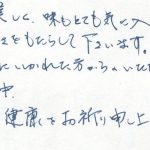 美しく、味もとても気に入
をもたらして下さいます。
にしかれた方からいただ
中、
健康をお祈り申し上